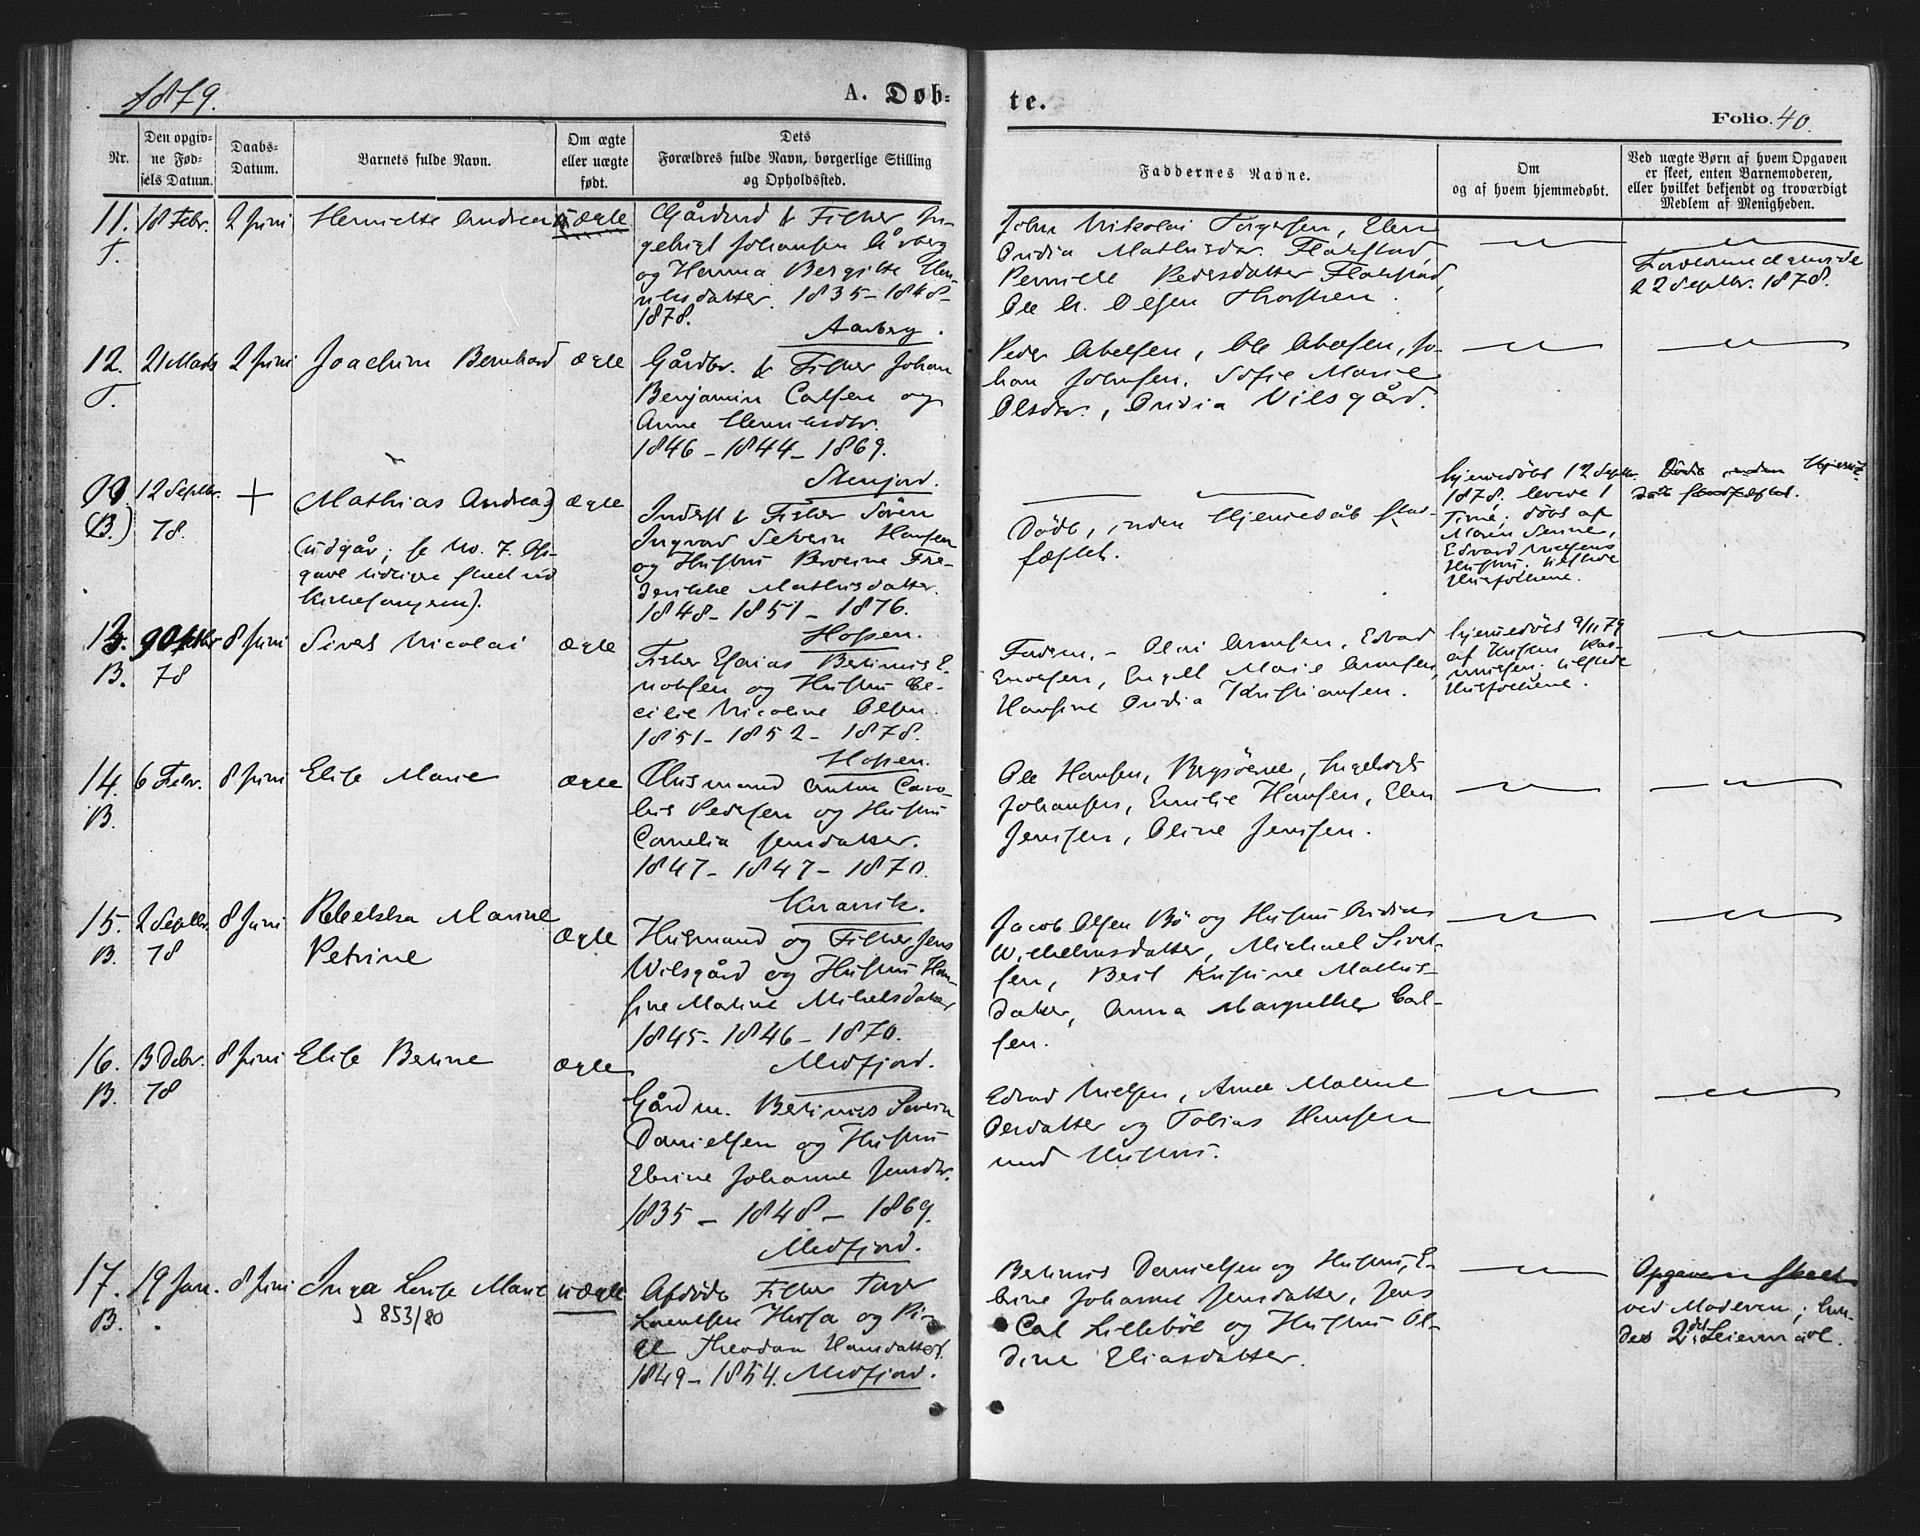 1879.
A. Døb-
te.
Folio. 40.
Nr.
Den opgiv-
ne Fød-
sels Datum.
Daabs-
Datum.
Barnets fulde Navn.
Om ægte
eller uægte
født.
Dets
Forældres fulde Navn, borgerlige Stilling
og Opholdssted.
Faddernes Navne.
Om
og af hvem hjemmedøbt.
Ved uægte Børn af hvem Opgaven
er skeet, enten Barnemoderen,
eller hvilket bekjendt og troværdigt
Medlem af Menigheden.
11.
T.
18 Febr.
2 Juni
Henriette Andrea
ægte
Gårdmd & Fisker In-
gebrigt Johansen Årberg
og Hanna Bergitte Hen-
riksdatter. 1835 - 1848 -
1878.
Aarberg.
John Nikolai Torgersen, Elen
Ovidia Mathisdtr. Flakstad,
Pernille Pedersdatter Flakstad,
Ole A. Olsen
22 Septbr. 1878.
12.
T.
21 Marts
2 Juni
Joachim Bernhard
ægte
Gårdbr. & Fisker Johan
Benjamin Carlsen og
Anne Henriksdtr.
1846 - 1844 - 1869.
Stenfjord.
Peder Abelsen, Ole Abelsen, Jo-
han Johnsen, Sofie Marie
Olsdtr., Ovidia Vilsgård.
09
(B.)
12 Septbr.
78.
+
Mathias Andreas
(udgår; se No. 7. Op-
gave tidligere skeet ved
Kirkesangeren).
ægte
Inderst & Fisker Sören
Ingvard Severin Hansen
og Hustru Berine Fre-
derikke Mathisdatter.
1848 - 1851 - 1876.
Hopen.
Døde, inden Hjemmedåb stad-
fæstet.
hjemmedöbt 12 Septbr.
1878, levede 1
Time; døbt af
Maren
Edvard Nielsens
Hustru; tilstede
Husfolkene.
Døde inden Hjemme-
dåb stadfæstet.
13.
B.
9 Oktbr
78
8 Juni
Sivert Nicolai
ægte
Fisker Esaias Bertinus E-
noksen og Hustru Ce-
cilie Nicoline Olsen.
1851 - 1852 - 1878.
Hopen.
Faderen, - Arntsen, Edvard
Enoksen, Engel Marie Arntsen,
Hansine Ovidia Kristiansen.
hjemmedöbt 9/11 79
af Kristen Ras-
mussen; tilstede
Husfolkene.
14.
B.
6 Febr.
8 Juni
Elise Marie
ægte
Husmand Anton Caro-
lius Pedersen og Hustru
Cornelia Jensdatter.
1847 - 1847 - 1870.
Knarvik.
Ole Hansen, Bergsøerne, Ingebrigt
Johansen, Emilie Hansen, Elen
Jenssen, Oline Jenssen.
15.
B.
2 Septbr.
78
8 Juni
Rebekka Marine
Petrine
ægte
Husmand og Fisker Jens
Wilsgård og Hustru Han-
sine Martine Mikelsdatter
1845 - 1846 - 1870.
Medfjord.
Jacob Olsen Bö og Hustru Ovidia
Wilhelmsdatter, Michael Sivert-
sen, Berit Kristine Mathis-
datter, Anna Margrethe Carl-
sen.
16.
B.
13 Debr.
78
8 Juni
Elise Berine
ægte
Gårdm. Bertinus Severin
Danielsen og Hustru
Ebrine Johanne Jensdtr.
1835 - 1848 - 1869.
Medfjord.
Edvard Nielsen, Anne Malene
Persdatter og Tobias Hansen
med Hustru.
17.
B.
19 Jan.
8 Juni
Inga Lovise Marie
853/80
uægte
Afdøde Fisker Tarjer
Lorentsen Husøa og Pi-
ge Theodora Hansdatter.
1849 - 1854. Medfjord.
Bertinus Danielsen og Hustru, E-
brine Johanne Jensdatter, Jens
Carl Lillebøe og Hustru Ol-
dine Eliasdatter.
Opgaven skeet
ved Moderen; hen-
des 2det Leiermaal.